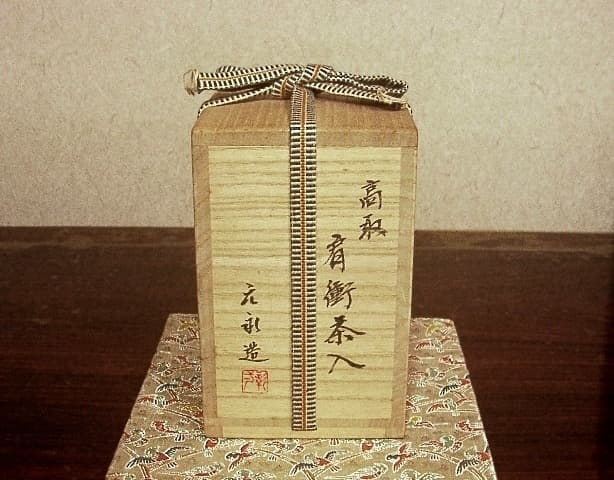 高取
肩衝茶入
元永造